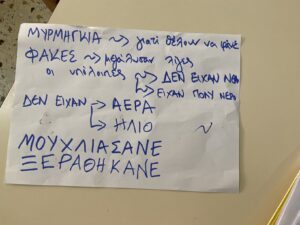 ΜΥΡΜΗΓΚΙΑ ~> γιατί θέλουν να φάνε
ΦΑΚΕΣ ~> μεγάλωσαν λίγες
οι υπόλοιπες ~> ΔΕΝ ΕΙΧΑΝ ΝΕΡΟ
↳ ΕΙΧΑΝ ΠΟΛΥ ΝΕΡΟ
ΔΕΝ ΕΙΧΑΝ → ΑΕΡΑ
↳ ΗΛΙΟ
ΜΟΥΧΛΙΑΣΑΝΕ
ΞΕΡΑΘΗΚΑΝΕ